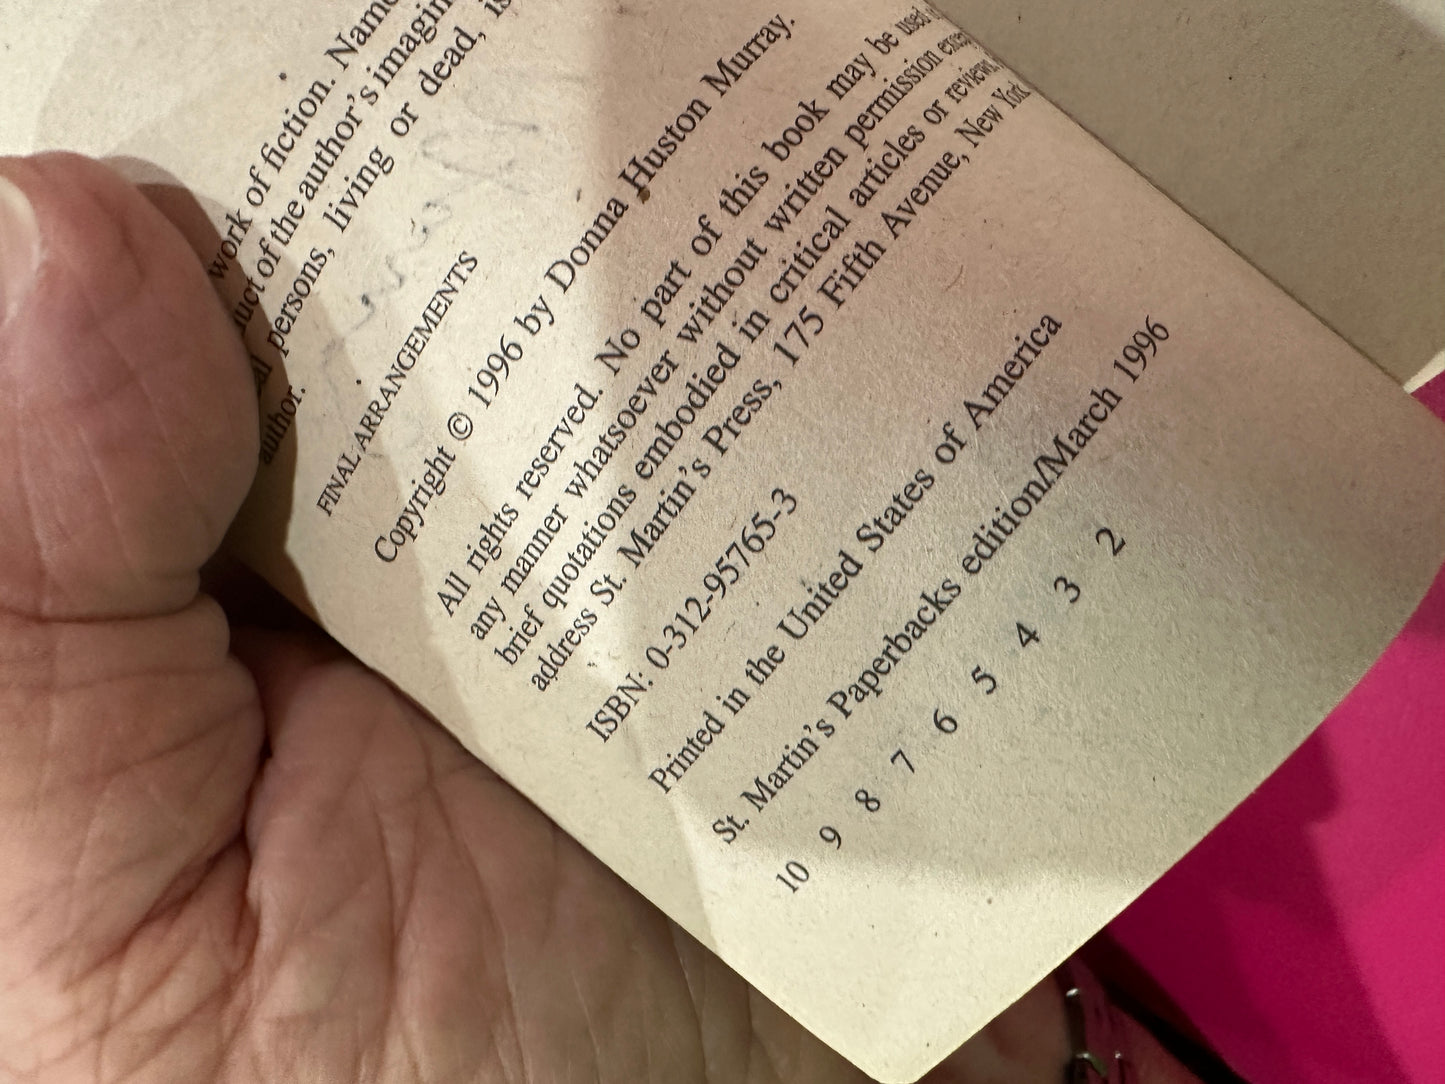 work of fiction. Name
uct of the author's imagin
persons, living or dead, is
author.
FINAL ARRANGEMENTS
Copyright © 1996 by Donna Huston Murray.
All rights reserved. No part of this book may be used
any manner whatsoever without written permission
brief quotations embodied in critical articles or reviews.
address St. Martin's Press, 175 Fifth Avenue, New York
ISBN: 0-312-95765-3
Printed in the United States of America
St. Martin's Paperbacks edition/March 1996
10 9 8 7 6 5 4 3 2